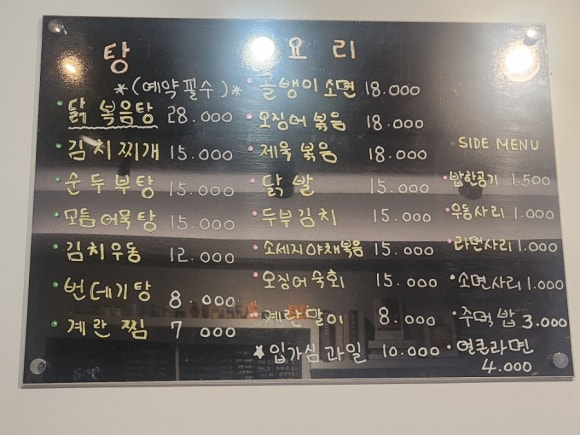 탕
*(예약필수)*
닭 볶음탕 28.000
김치찌개 15.000
순두부탕 15.000
모듬어묵탕 15.000
김치우동 12.000
번데기탕 8.000
계란찜 7.000
요리
골뱅이소면 18.000
오징어볶음 18.000
제육볶음 18.000
닭발 15.000
두부김치 15.000
소세지야채볶음 15.000
오징어숙회 15.000
계란말이 8.000
★입가심과일 10.000
SIDE MENU
밥한공기 1.500
우동사리 1.000
라면사리 1.000
소면사리 1.000
주먹밥 3.000
얼큰라면
4.000